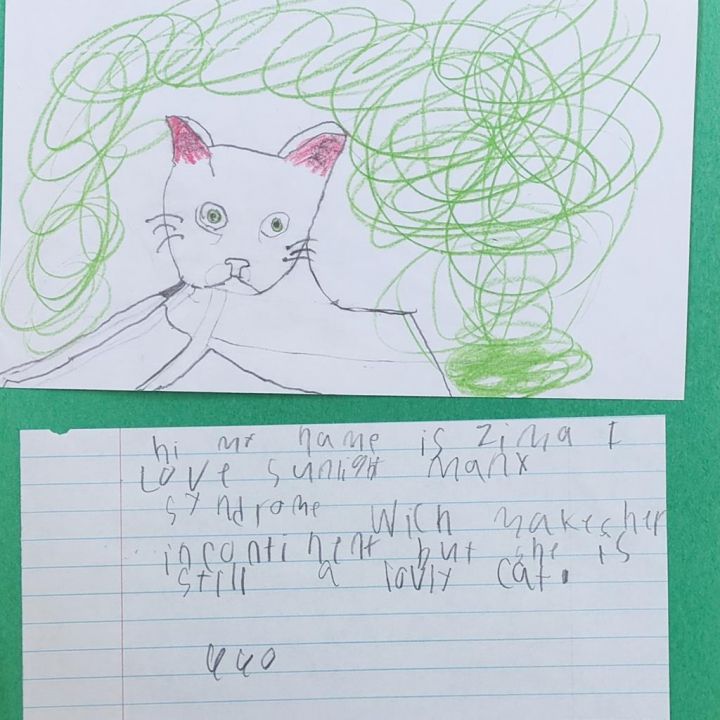 hi my name is Zima I
Love sunlight manx
syndrome wich makes her
incontinent but she is
still a lovly cat.